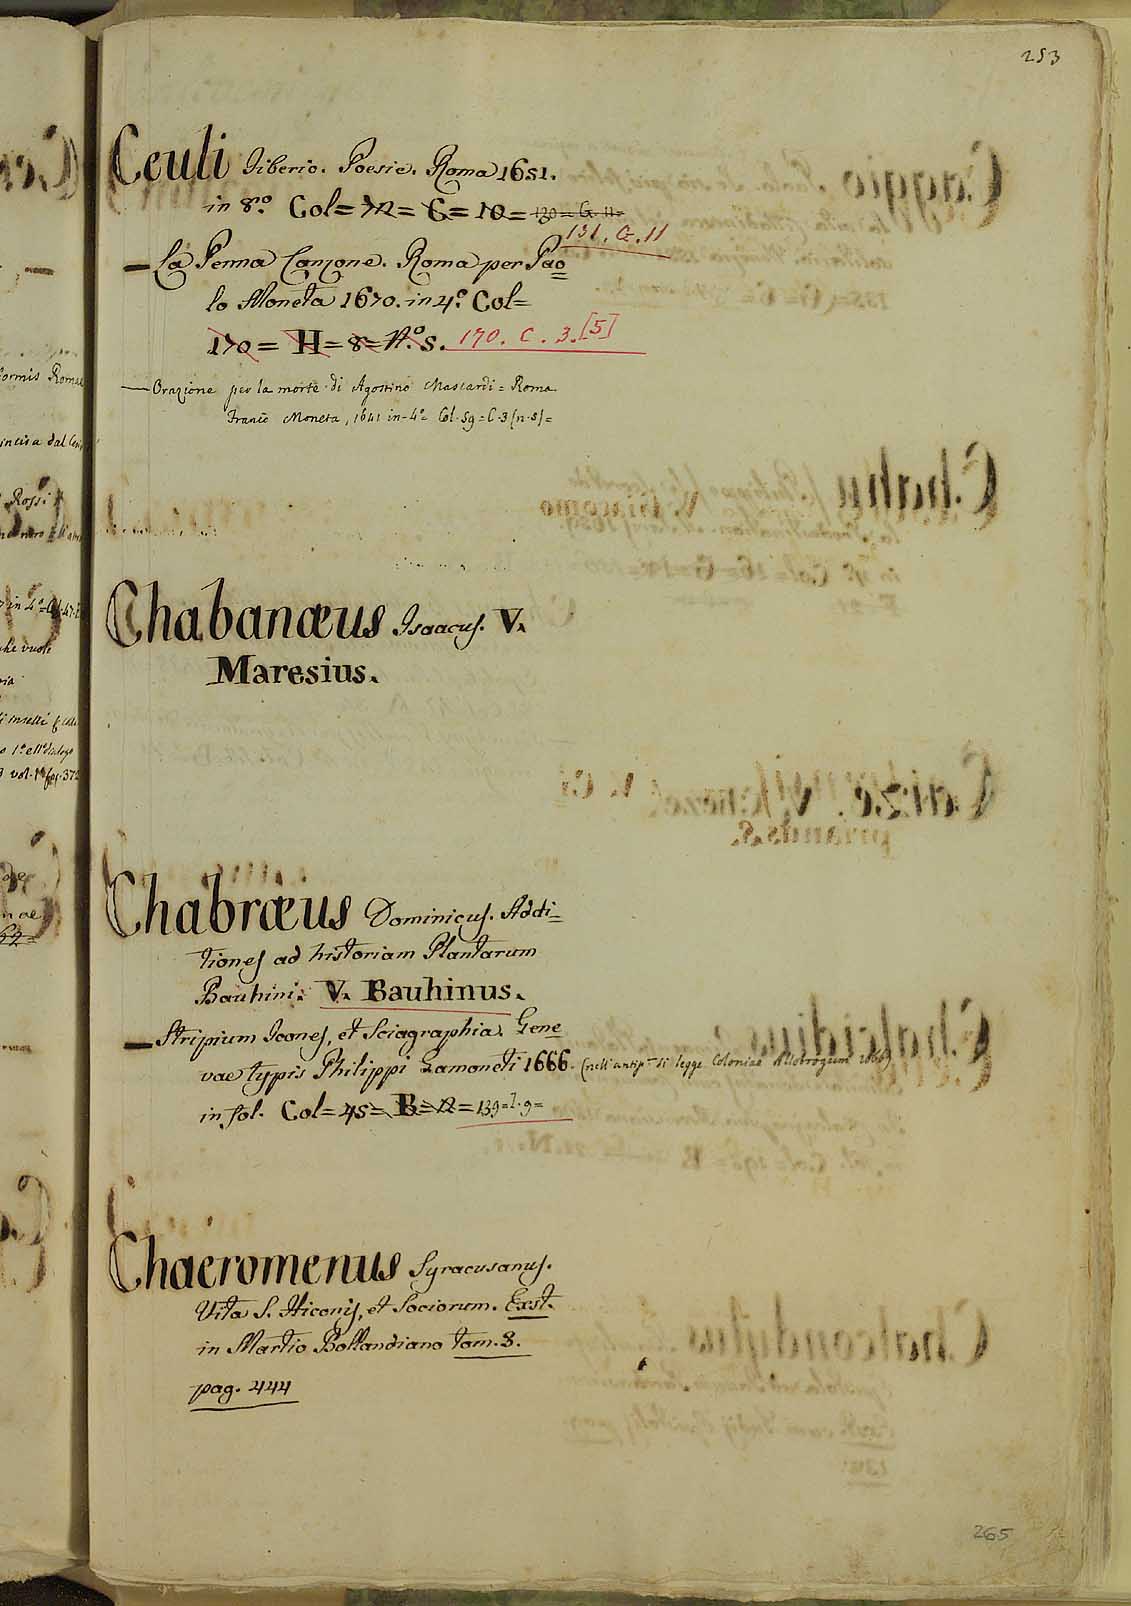 253
Ceuli Tiberio. Poesie. Roma 1651.
in 8.º Col= 72= G= 10= 130= G. 11=
131. G. 11
— La Penna Canzone. Roma per Pao=
lo Moneta 1670. in 4.º Col=
170= H= 8= N.º 5. 170. C. 3. [5]
— Orazione per la morte di Agostino Mascardi = Roma
Franc.º Moneta, 1641 in-4º= Col. 59= C. 3 [n. 5]=
Chabanæus Isaacus. V.
Maresius.
Chabræus Dominicus. Addi=
tiones ad historiam Plantarum
Bauhini. V. Bauhinus.
— Stripium Icones, et Sciagraphia. Gene=
vae typis Philippi Gamoneti 1666. (nell'antip.ª si legge Coloniae Allobrogum 1666)
in fol. Col= 45= B= 12= 139= I. 9=
Chaeromenus Syracusanus.
Vita S. Niconis, et Sociorum. Exst.
in Martio Bollandiano tom. 3.
pag. 444
265